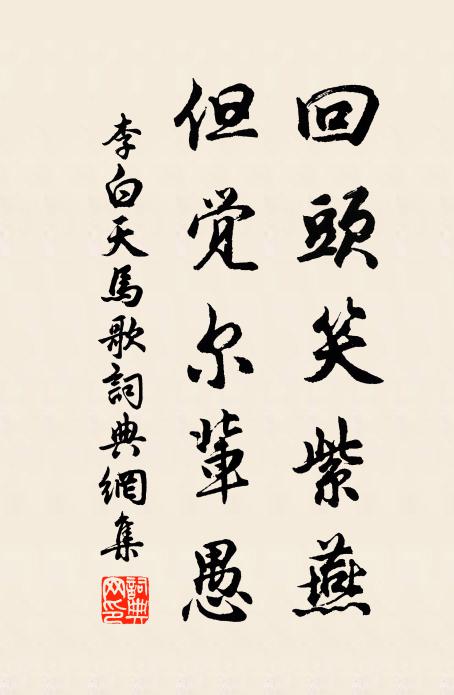 回頭笑紫燕
但覚尔輩愚
李白天馬歌詞典網集
詞典网印